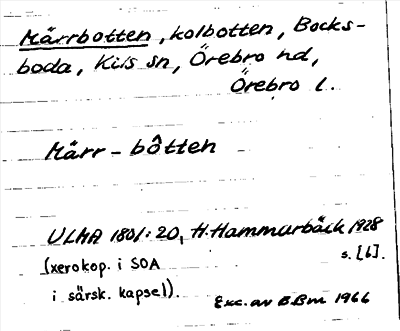 Märrbotten, kolbotten, Bocks-
boda, Kils sn, Örebro hd,
Örebro l.
Märr-bôtten
ULMA 1801:20, H. Hammarbäck 1928
s. [6].
(xerokop. i SOA
i särsk. kapsel).
Exc. av BBm 1966